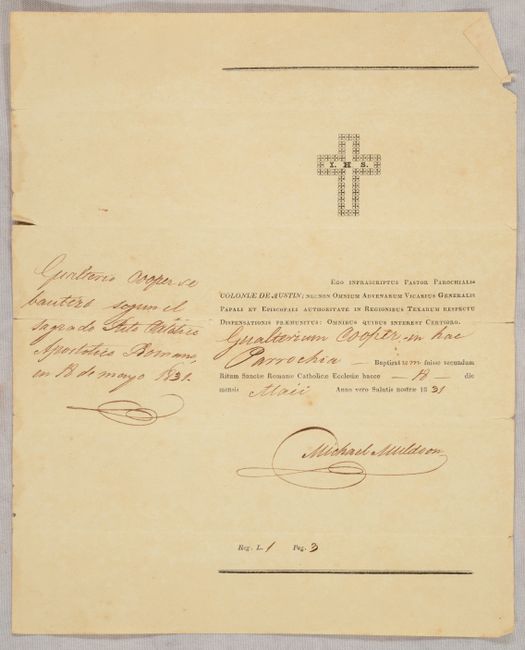 Y. H S.
Gualterio Cooper se
bautizó segun el
sagrado Rito Catolico
Apostolico Romano,
en 18 de mayo 1831.
EGO INFRASCRIPTUS PASTOR PAROCHIALIS
COLONIÆ DE AUSTIN; NECNON OMNIUM ADVENARUM VICARIUS GENERALIS
PAPALI ET EPISCOPALI AUTHORITATE IN REGIONIBUS TEXARUM RESPECTU
DISPENSATIONIS PRÆMUNITUS: OMNIBUS QUIBUS INTEREST CERTORO.
Gualterium Cooper, in hac
Parrochia — Baptizat fuisse secundum
Ritum Sanctæ Romanæ Catholicæ Ecclesiæ hacce — 18 — die
mensis Maii Anno vero Salutis nostræ 1831
Michael Muldoon
Reg. L. 1 Pag. 3